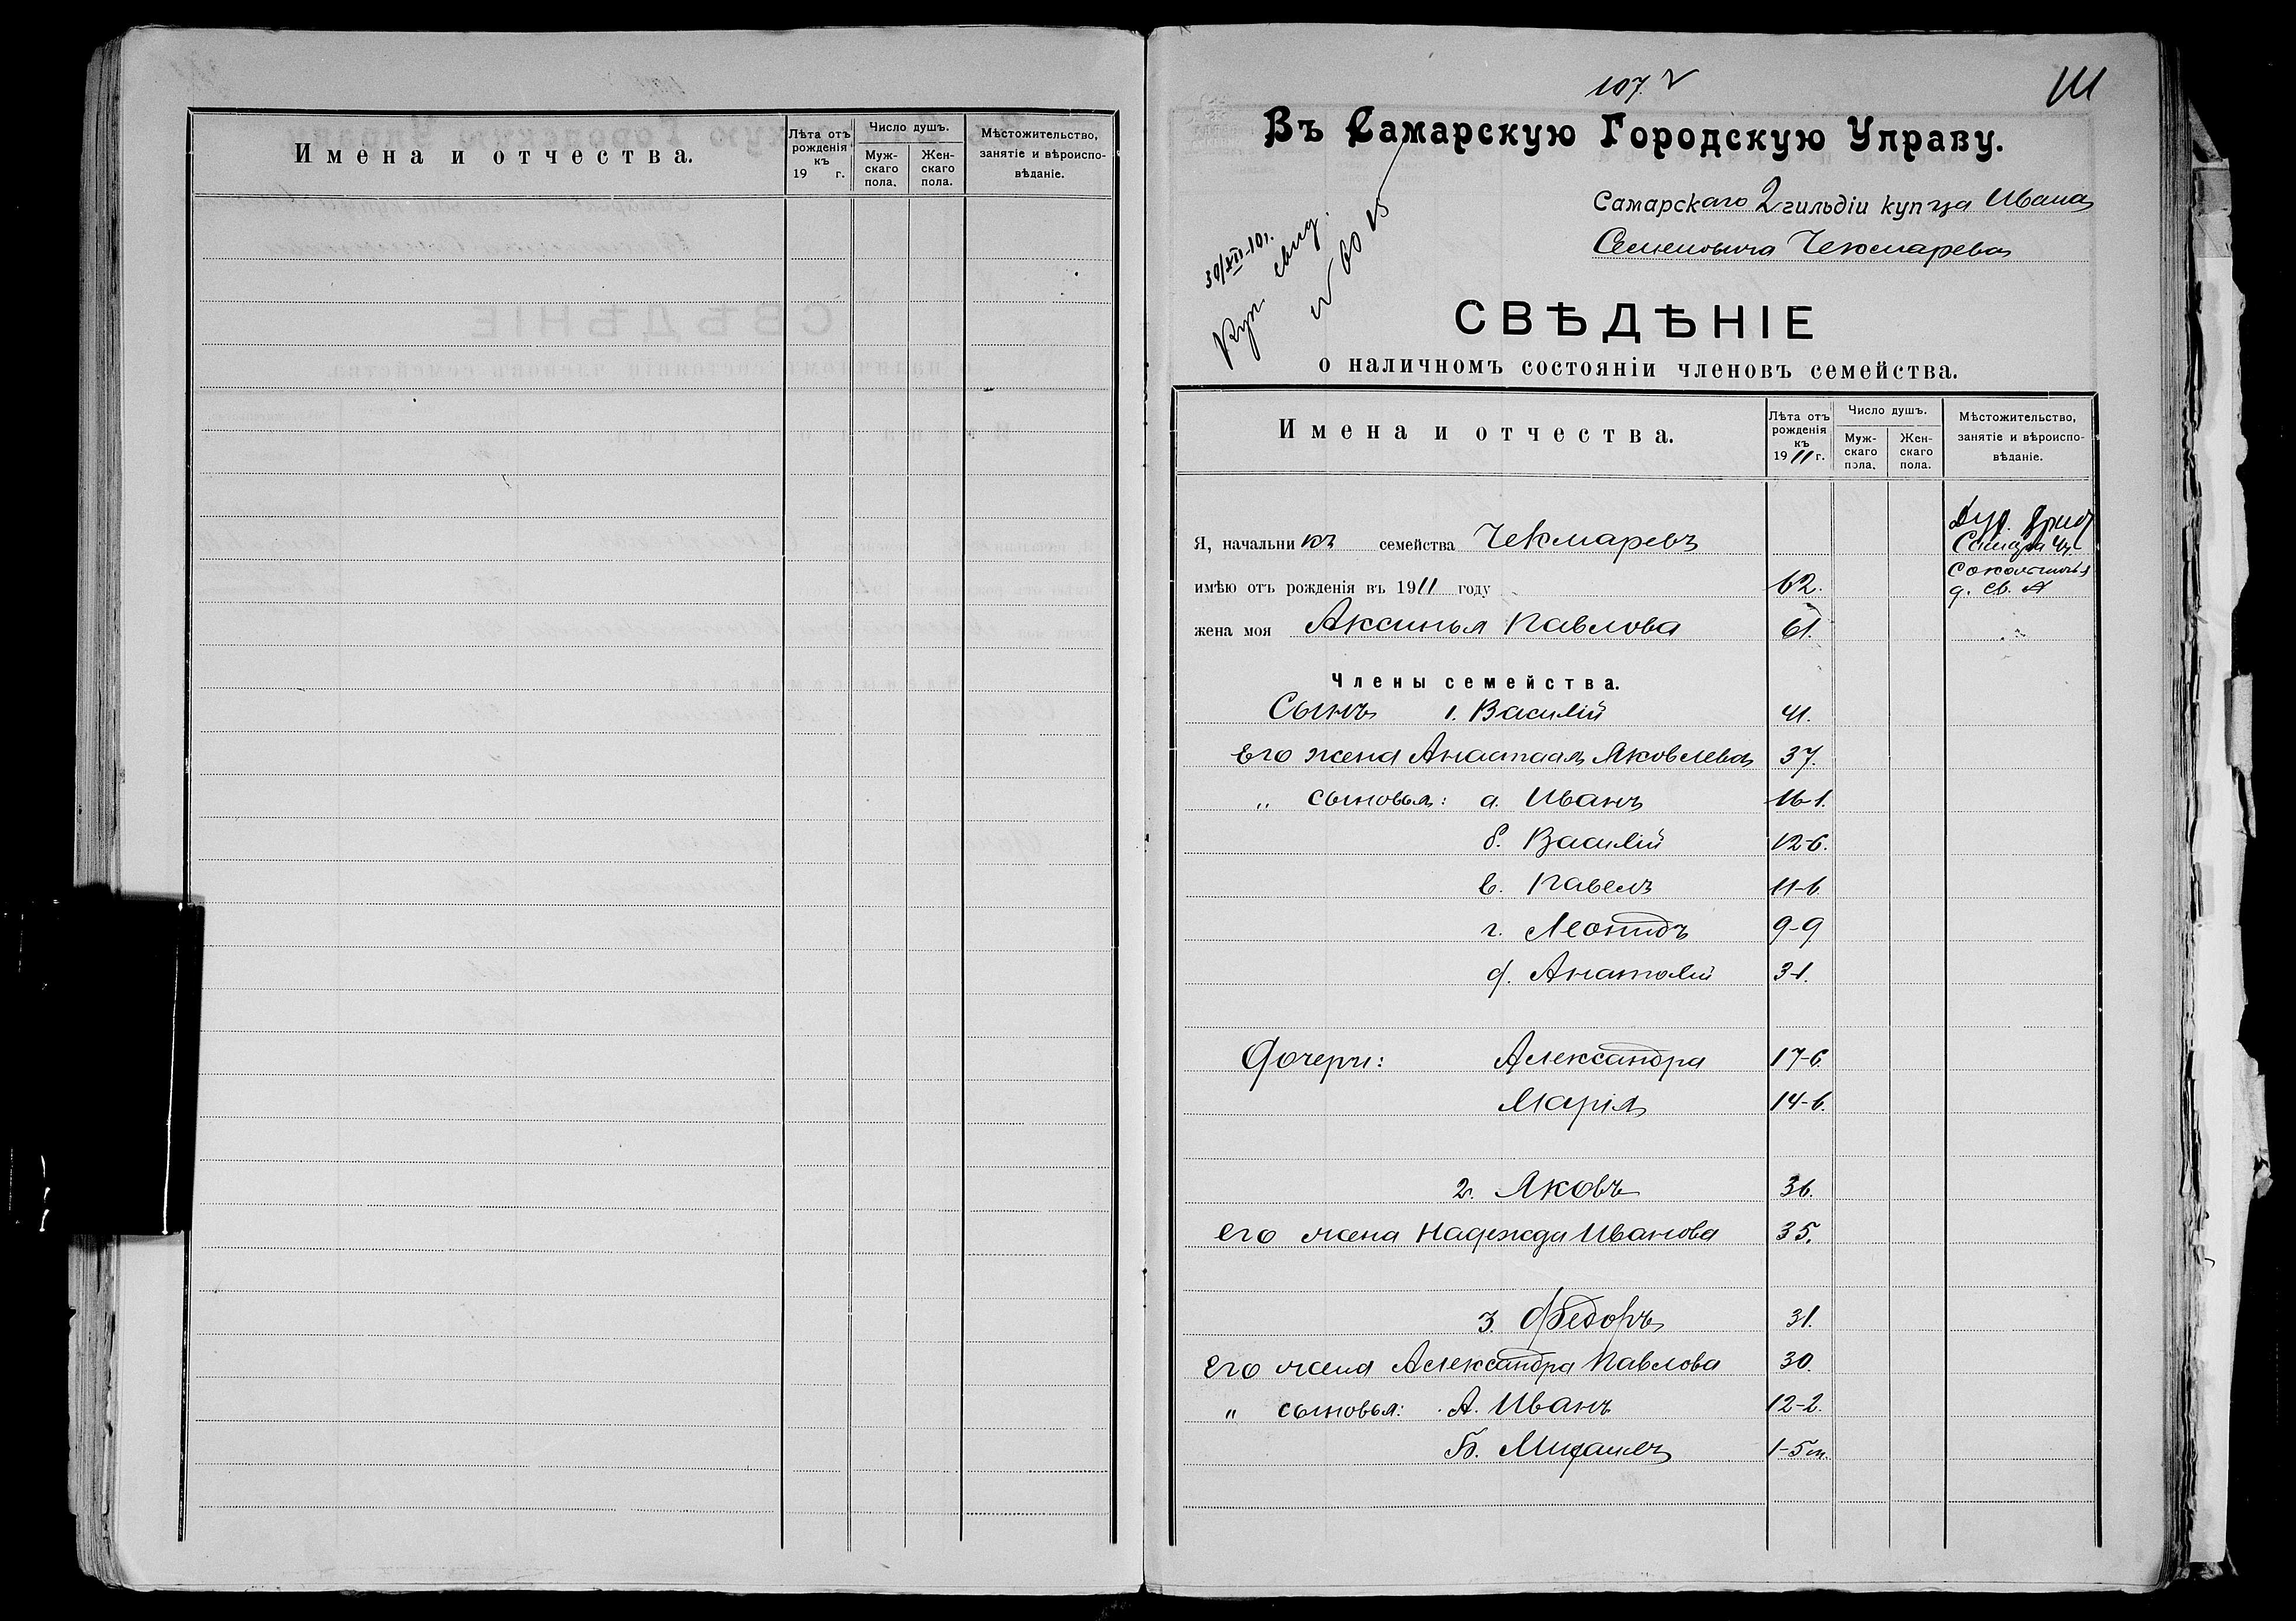 Имена и отчества.
Лѣта отъ рожденія къ 19 г.
Число душъ.
Муж-скаго пола.
Жен-скаго пола.
Мѣстожительство, занятіе и вѣроиспо-вѣданіе.
107.
111
Въ Самарскую Городскую Управу.
Самарскаго 2 гильдіи купца Ивана
Семеновича Чекмарева
30/XII-10 г.
Куп. свид.
СВѢДѢНІЕ
о наличномъ состояніи членовъ семейства.
Имена и отчества.
Лѣта отъ рожденія къ 1911 г.
Число душъ.
Муж-скаго пола.
Жен-скаго пола.
Мѣстожительство, занятіе и вѣроиспо-вѣданіе.
Я, начальникъ семейства Чекмаревъ
Самара
имѣю отъ рожденія въ 1911 году 62.
д. св. А
жена моя Аксинья Павлова 61. "
Члены семейства.
Сынъ 1. Василій 41.
Его жена Анастасія Яковлева 37.
" сыновья: а. Иванъ 16-1.
б. Василій 12-6.
в. Павелъ 11-6
г. Леонидъ 9-9
д. Анатолій 3-1.
Дочери: Александра 17-6.
Марія 14-6.
2. Яковъ 36.
его жена Надежда Иванова 35.
3. Федоръ 31.
его жена Александра Павлова 30.
" сыновья: А. Иванъ 12-2.
Б. Михаилъ 1-5 м.